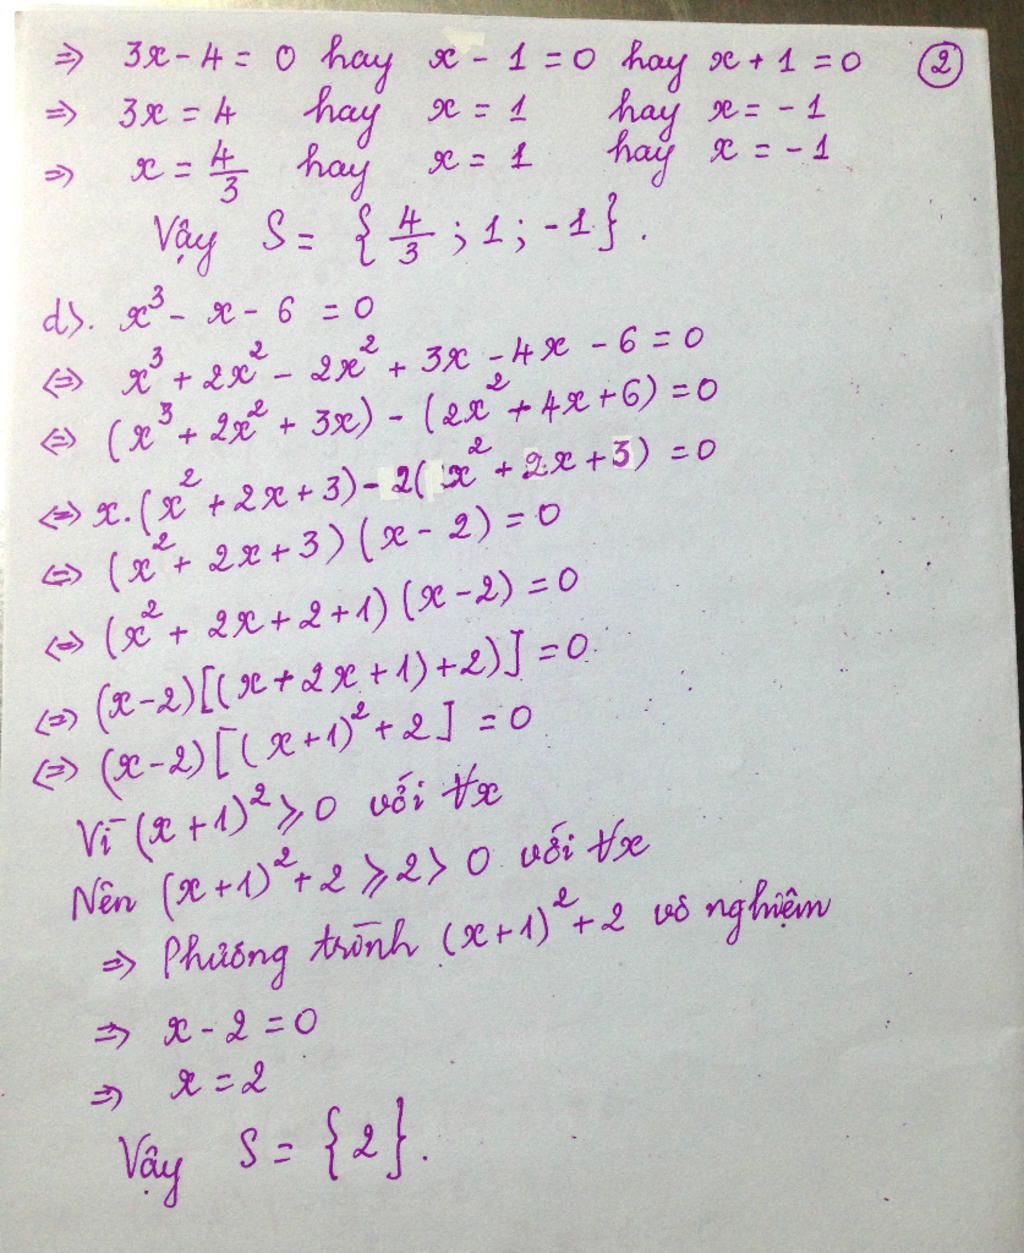 ⇒ 3x - 4 = 0 hay x - 1 = 0 hay x + 1 = 0 ②
⇒ 3x = 4 hay x = 1 hay x = - 1
⇒ x = 4/3 hay x = 1 hay x = - 1
Vậy S = {4/3 ; 1 ; -1}.
d). x³ - x - 6 = 0
⇔ x³ + 2x² - 2x² + 3x - 4x - 6 = 0
⇔ (x³ + 2x² + 3x) - (2x² + 4x + 6) = 0
⇔ x.(x² + 2x + 3) - 2(x² + 2x + 3) = 0
⇔ (x² + 2x + 3)(x - 2) = 0
⇔ (x² + 2x + 2 + 1)(x - 2) = 0
⇔ (x - 2)[(x + 2x + 1) + 2)] = 0.
⇔ (x - 2)[(x + 1)² + 2] = 0
Vì (x + 1)² ⩾ 0 với ∀x
Nên (x + 1)² + 2 ⩾ 2 > 0 với ∀x
⇒ Phương trình (x + 1)² + 2 vô nghiệm
⇒ x - 2 = 0
⇒ x = 2
Vậy S = {2}.